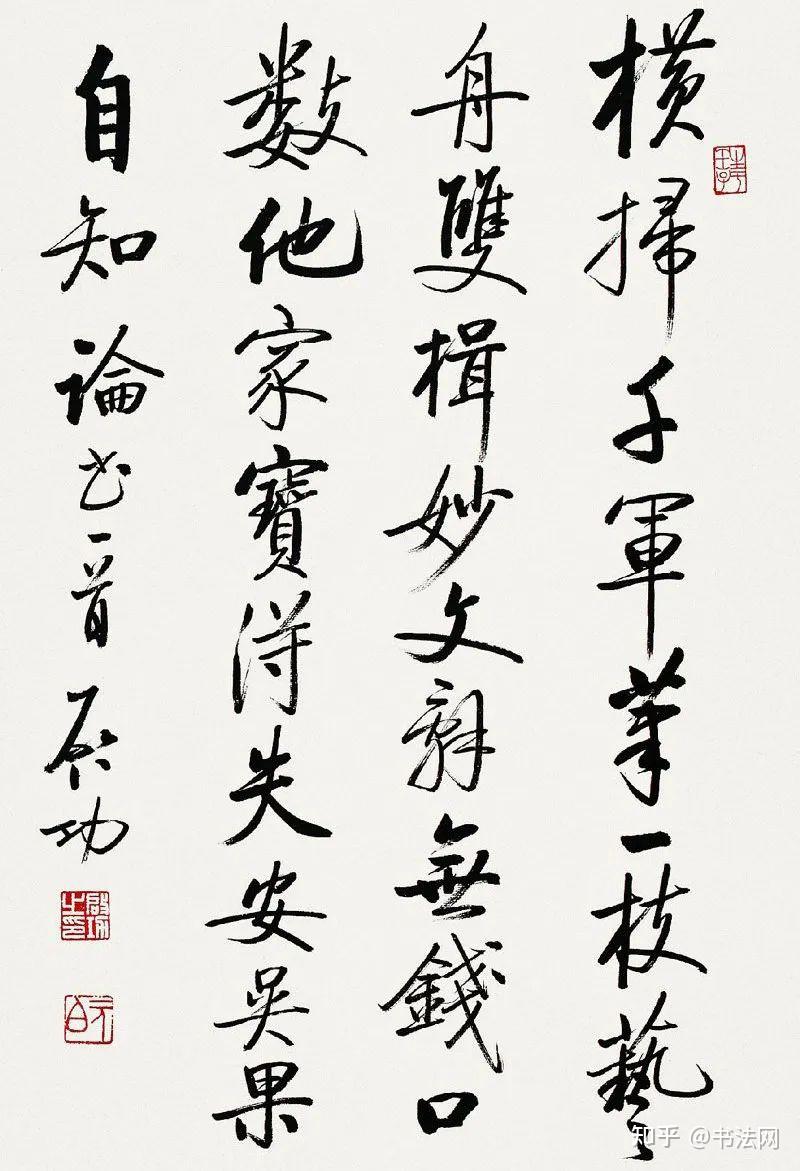 橫掃千軍筆一枝藝
舟雙楫妙文辭無錢口
數他家寶得失安吳果
自知 論书一首 启功
啟功之印
元白
知乎 @书法网